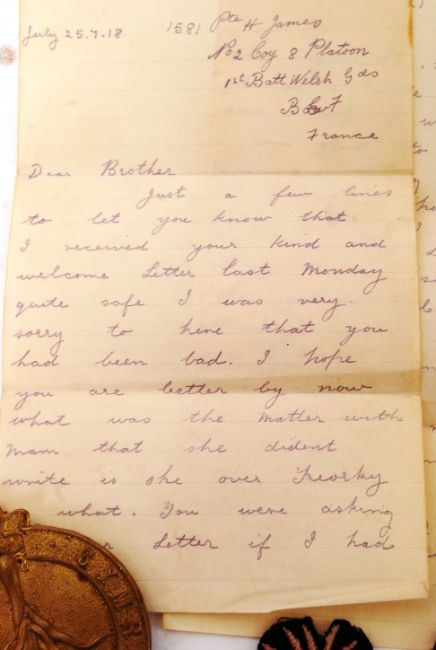 July 25.7.18 1581 Pte H James
No 2 Coy 8 Platoon
1st Batt Welsh Gds
B E F
France
Dear Brother
Just a few lines
to let you know that
I received your kind and
welcome Letter last Monday
quite safe I was very
sorry to here that you
had been bad. I hope
you are better by now
what was the matter with
Mam that she dident
write is she over Treorky
what. You were asking
Letter if I had